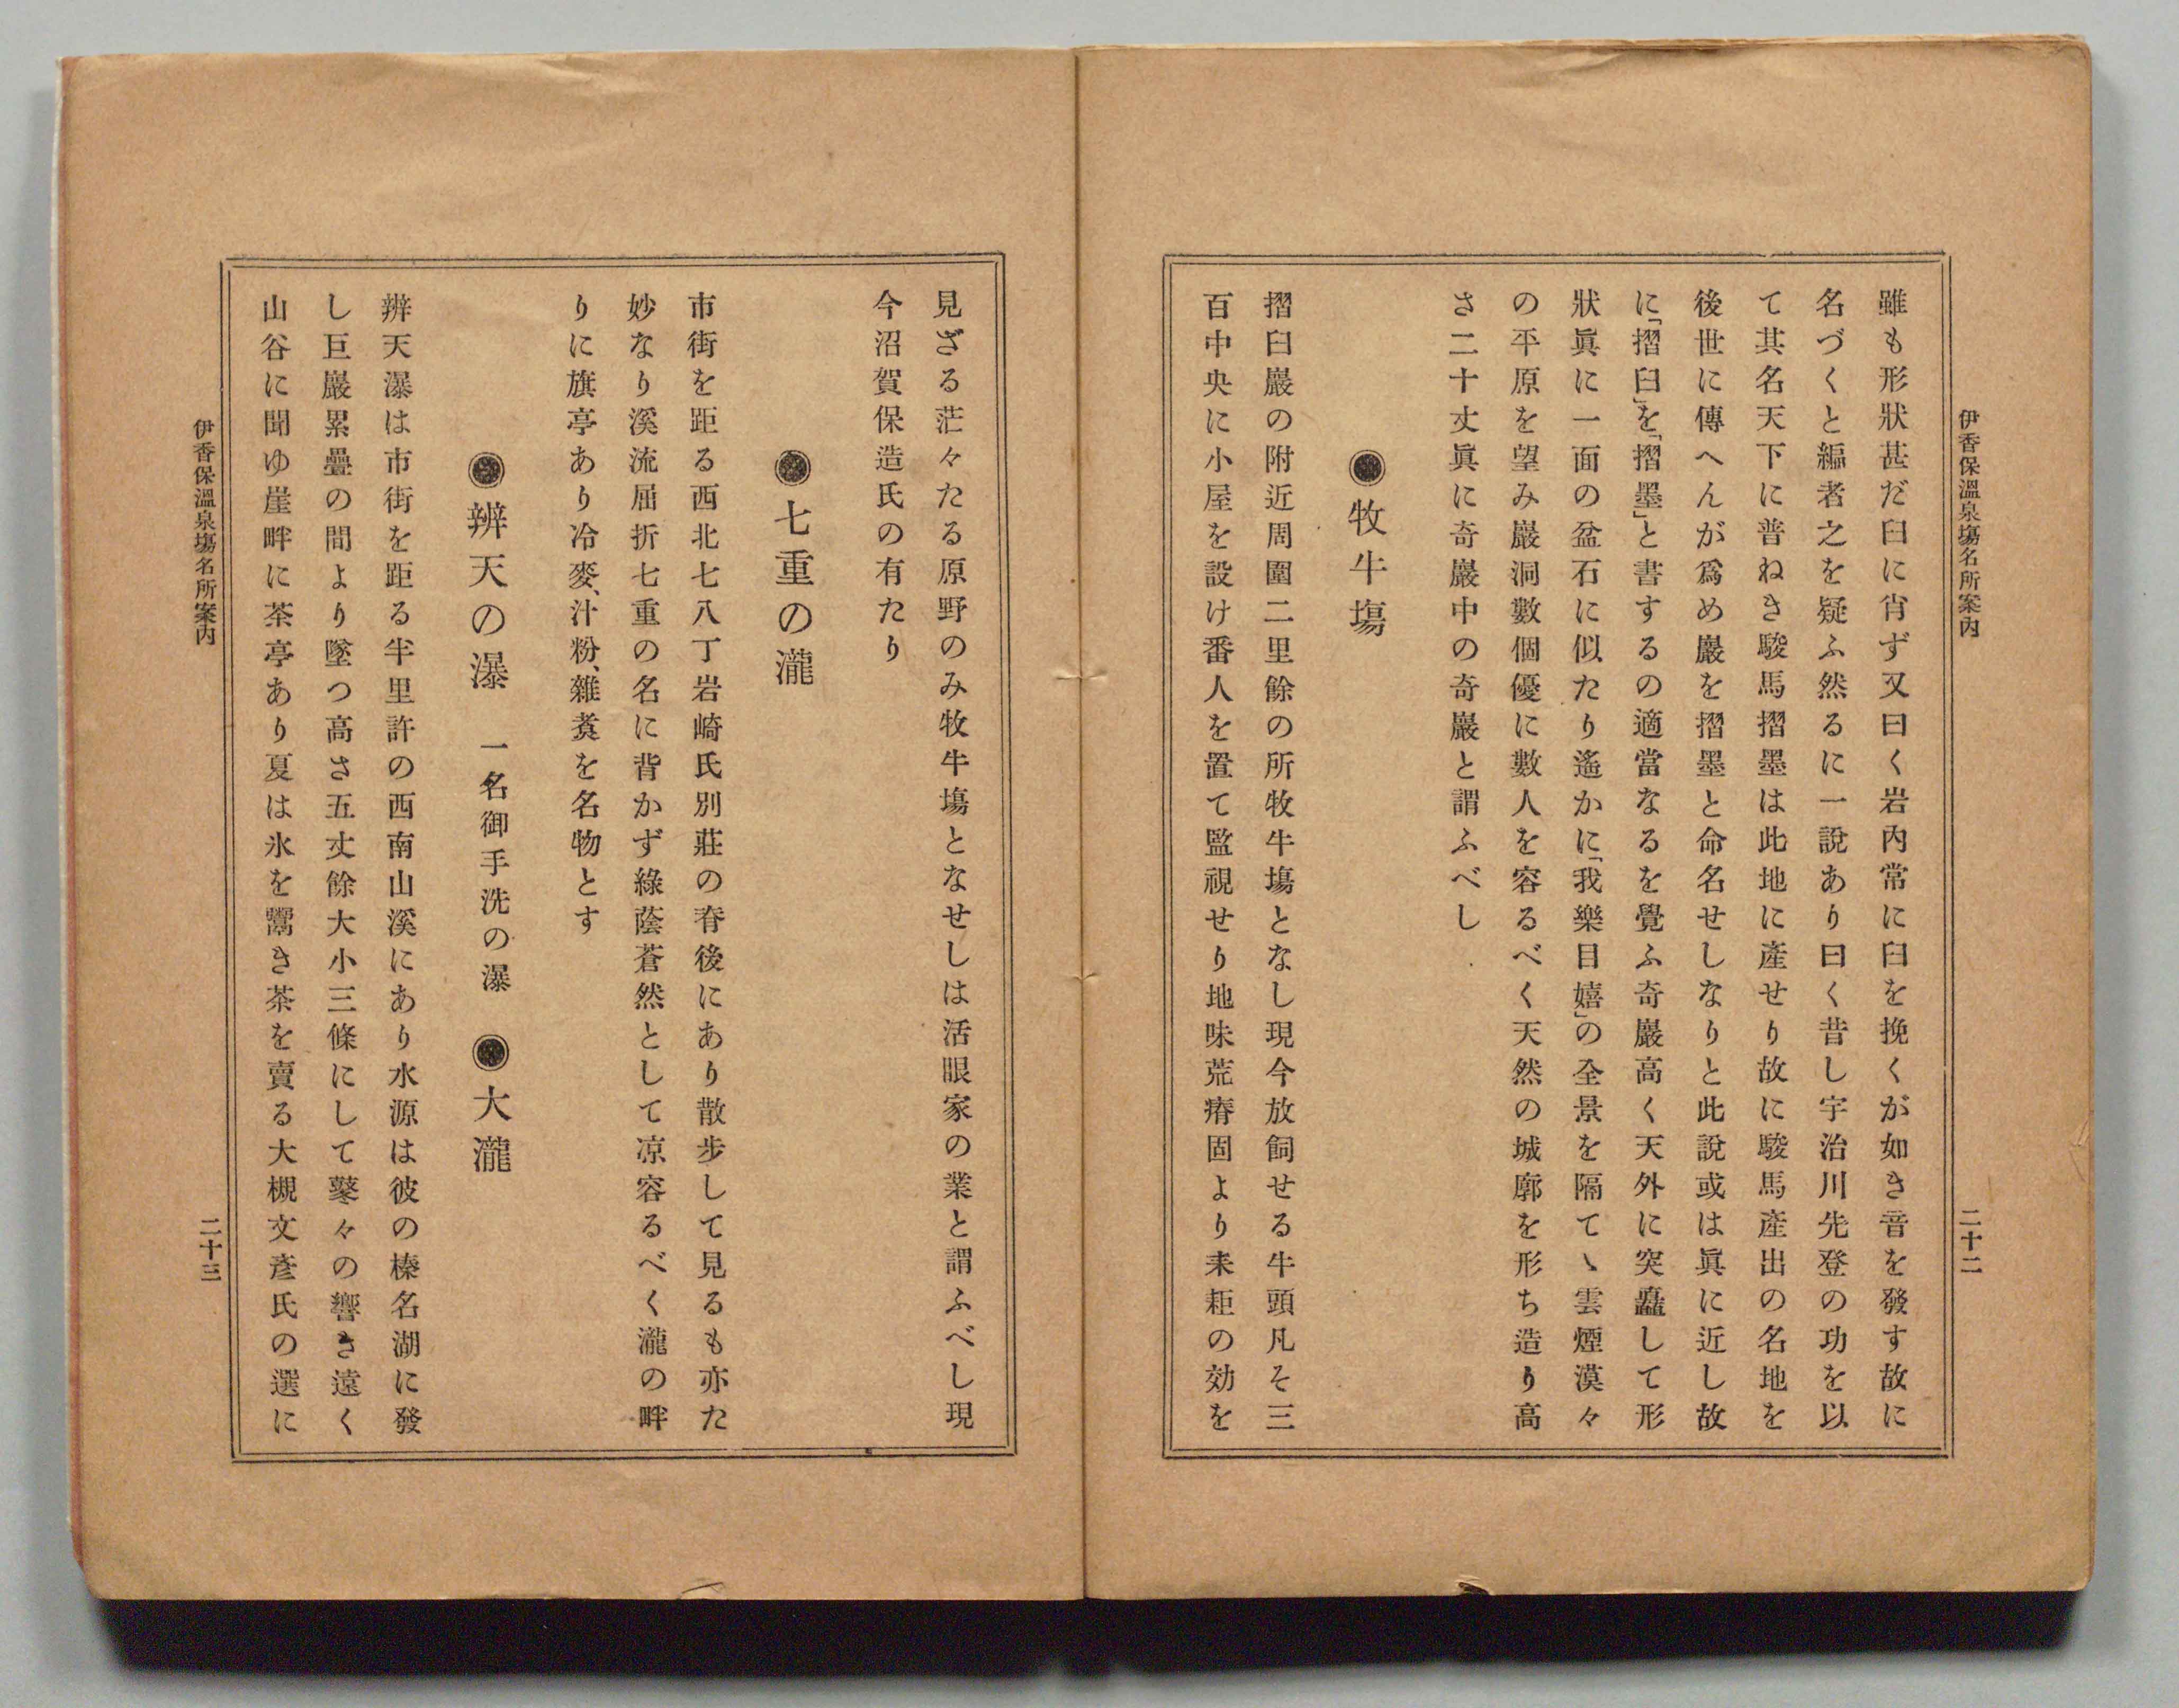 伊香保溫泉塲名所案內
二十二
雖も形狀甚だ臼に肖ず又曰く岩內常に臼を挽くが如き音を發す故に
名づくと編者之を疑ふ然るに一說あり曰く昔し宇治川先登の功を以
て其名天下に普ねき駿馬摺墨は此地に產せり故に駿馬產出の名地を
後世に傳へんが爲め巖を摺墨と命名せしなりと此說或は眞に近し故
に「摺臼」を「摺墨」と書するの適當なるを覺ふ奇巖高く天外に突矗して形
狀眞に一面の盆石に似たり遙かに「我樂目嬉」の全景を隔てゝ雲煙漠々
の平原を望み巖洞數個優に數人を容るべく天然の城廓を形ち造り高
さ二十丈眞に奇巖中の奇巖と謂ふべし
◉牧牛塲
摺臼巖の附近周圍二里餘の所牧牛塲となし現今放飼せる牛頭凡そ三
百中央に小屋を設け番人を置て監視せり地味荒瘠固より耒耟の効を
見ざる茫々たる原野のみ牧牛塲となせしは活眼家の業と謂ふべし現
今沼賀保造氏の有たり
◉七重の瀧
市街を距る西北七八丁岩崎氏別莊の脊後にあり散步して見るも亦た
妙なり溪流屈折七重の名に背かず綠蔭蒼然として凉容るべく瀧の畔
りに旗亭あり冷麥、汁粉、雜煑を名物とす
◉辨天の瀑 一名御手洗の瀑 ◉大瀧
辨天瀑は市街を距る半里許の西南山溪にあり水源は彼の榛名湖に發
し巨巖累疊の間より墜つ高さ五丈餘大小三條にして鼕々の響き遠く
山谷に聞ゆ崖畔に茶亭あり夏は氷を鬻き茶を賣る大槻文彥氏の選に
伊香保溫泉塲名所案內
二十三